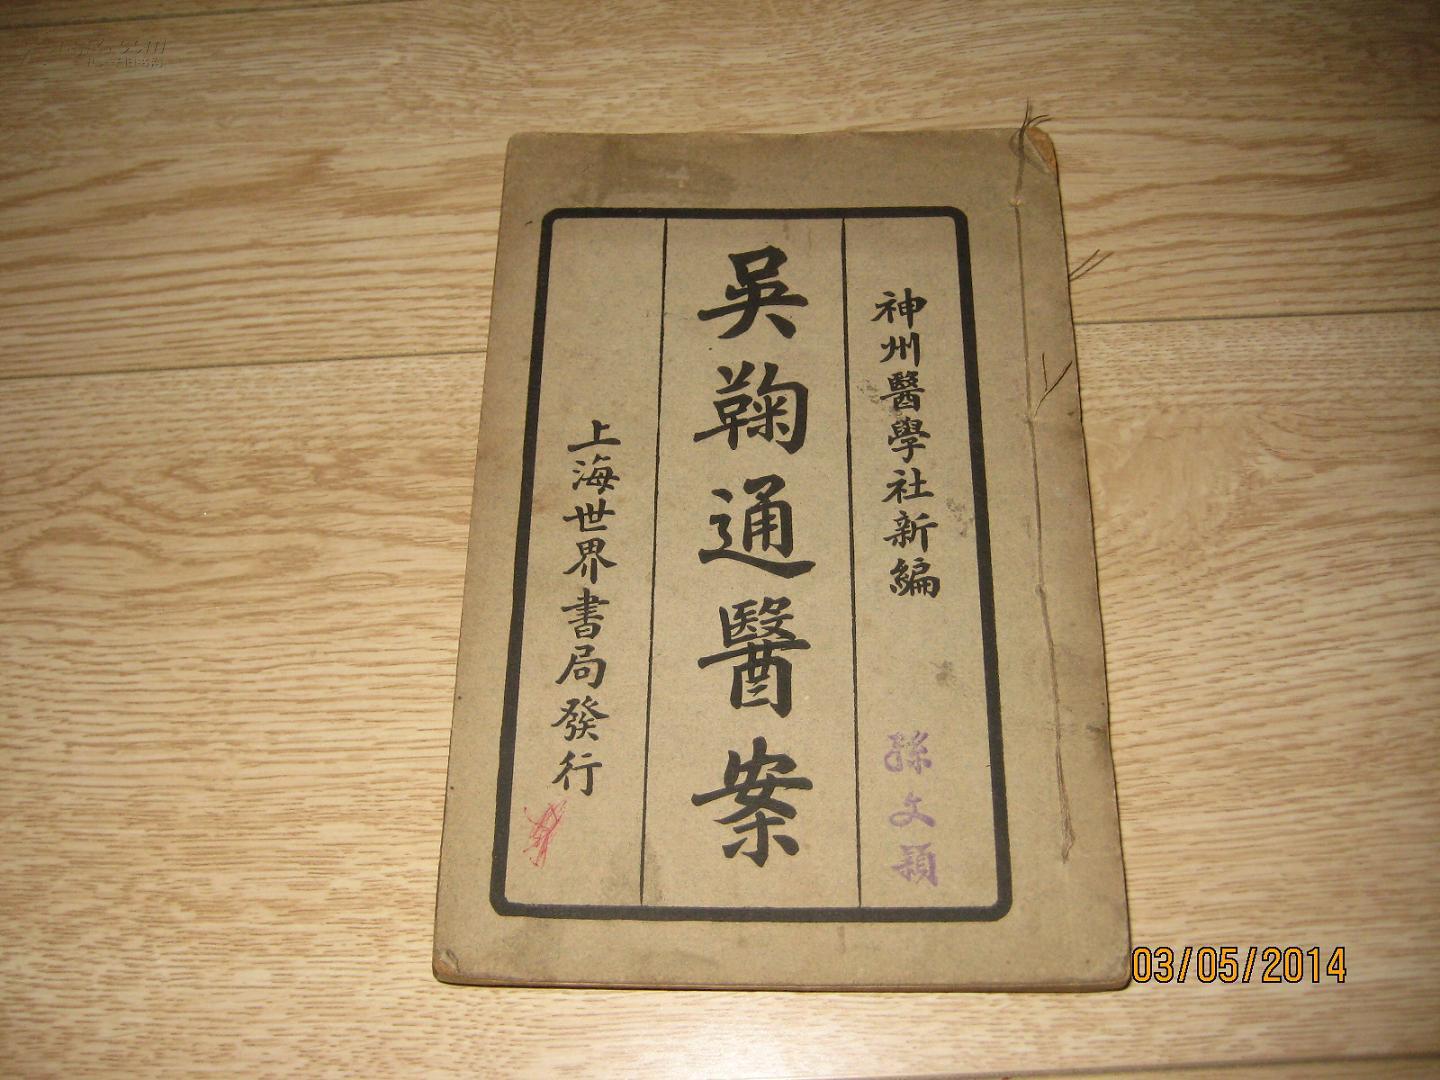 神州醫學社新編
孫文穎
吳鞠通醫案
上海世界書局發行
03/05/2014